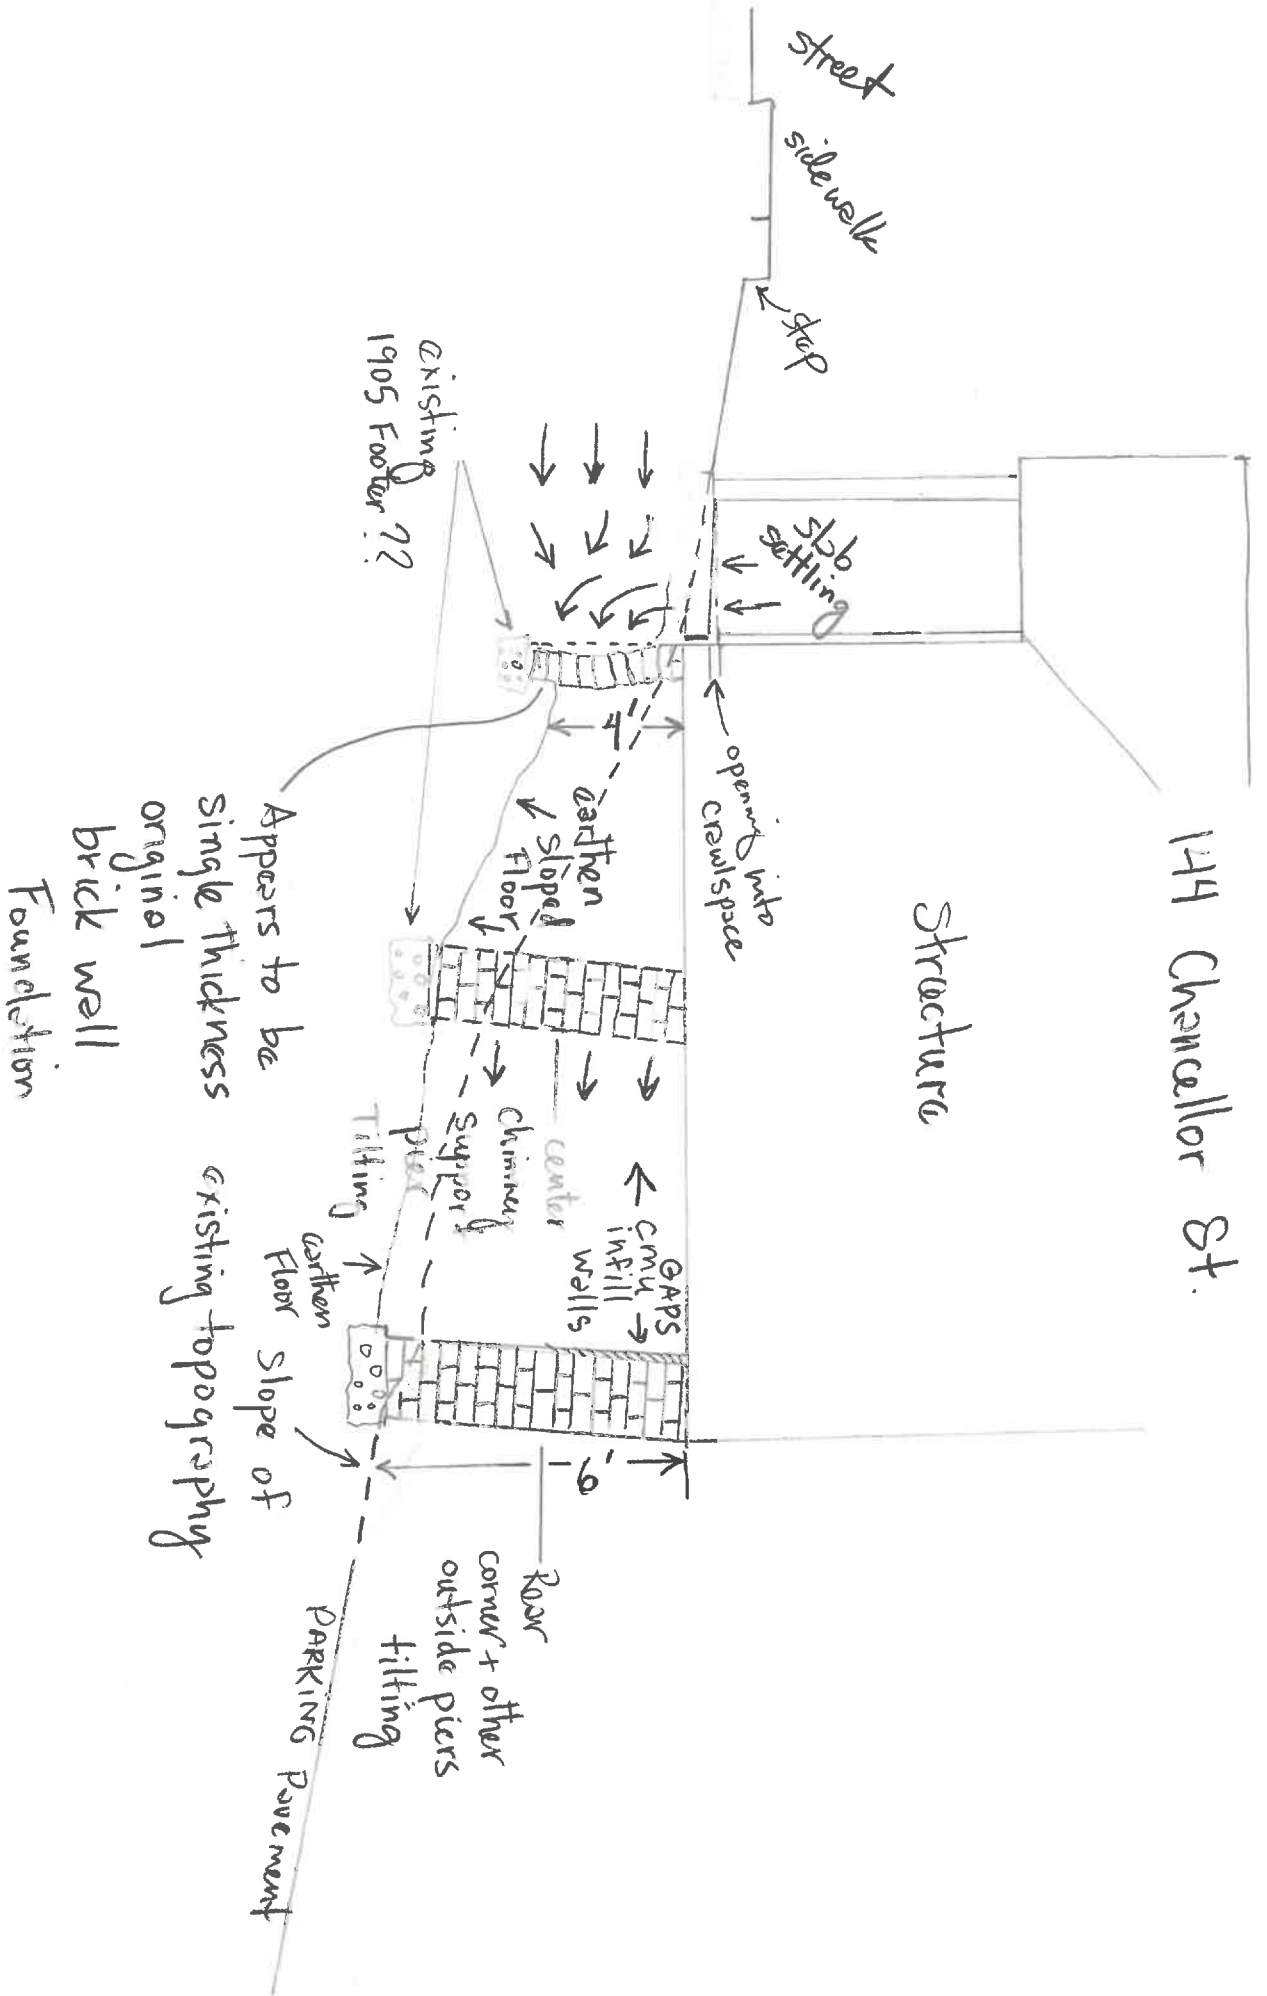 144 Chancellor St.
Structure
street
sidewalk
step
slab
settling
opening into
crawlspace
4'
earthen
sloped
Floor
existing
1905 Footer??
Appears to be
single thickness
original
brick wall
Foundation
center
chimney
support
pier
Tilting
GAPS
cmu
infill
walls
earthen
Floor
Slope of
existing topography
9'
Rear
corner + other
outside piers
tilting
PARKING Pavement